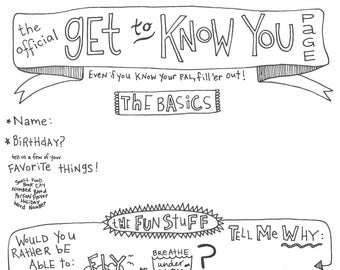 the official GET to KNOW YOU PAGE
Even if you know your pal, fill 'er out!
the BASICS
* Name:
* BirthDay?
tell us a few of your
FAVORITE THINGS!
the FUN STUFF
WOULD YOU
RATHER BE
ABLE to:
FLY
BREATHE
under
?
TELL Me WHY: